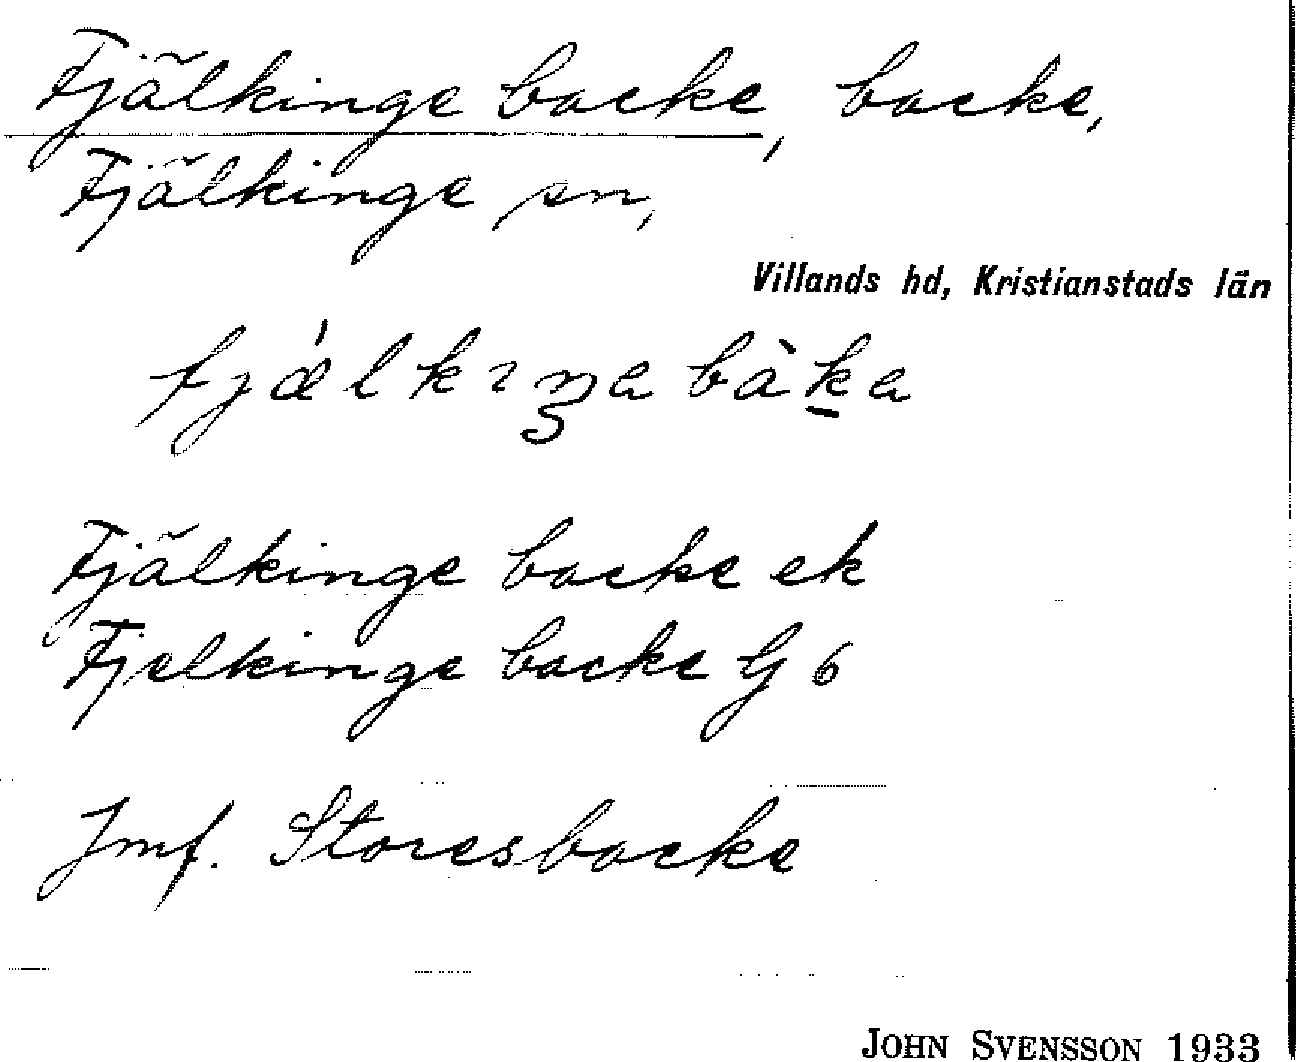 Fjälkinge backe, backe,
Fjälkinge sn,
Villands hd, Kristianstads län
fjǽlkıŋa bàka
Fjälkinge backe ek
Fjelkinge backe G 6
Jmf. Storesbacke
JOHN SVENSSON 1933